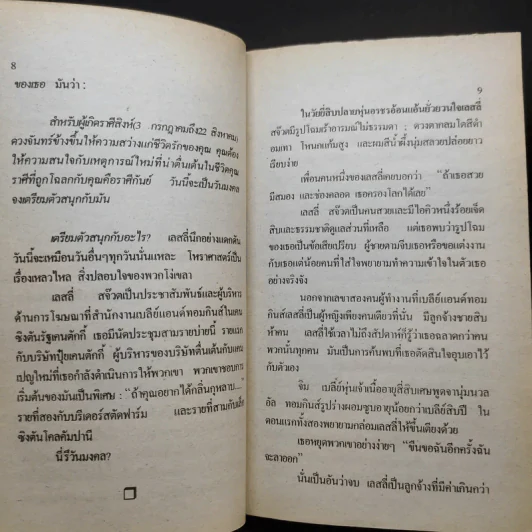 8
ของเธอ มันว่า :
สำหรับผู้เกิดราศีสิงห์(3 กรกฎาคมถึง22 สิงหาคม)
ดวงจันทร์ข้างขึ้นให้ความสว่างแก่ชีวิตรักของคุณ คุณต้อง
ให้ความสนใจกับเหตุการณ์ใหม่ที่น่าตื่นเต้นในชีวิตคุณ
ราศีที่ถูกโฉลกกับคุณคือราศีกันย์ วันนี้จะเป็นวันมงคล
จงเตรียมตัวสนุกกับมัน
เตรียมตัวสนุกกับอะไร? เลสลี่นึกอย่างแดกดัน
วันนี้จะเหมือนวันอื่นๆทุกวันนั่นแหละ โหราศาสตร์เป็น
เรื่องเหลวไหล สิ่งปลอบใจของพวกโง่เขลา
เลสลี่ สจ๊วตเป็นประชาสัมพันธ์และผู้บริหาร
ด้านการโฆษณาที่สำนักงานเบลีย์แอนด์ทอมกินส์ในเลก
ซิงตันรัฐเคนตักกี้ เธอมีนัดประชุมสามรายบ่ายนี้ รายแรก
กับบริษัทปุ๋ยเคนตักกี้ ผู้บริหารของบริษัทตื่นเต้นกับแคม
เปญใหม่ที่เธอกำลังดำเนินการให้พวกเขา พวกเขาชอบการ
เริ่มต้นของมันเป็นพิเศษ : "ถ้าคุณอยากได้กลิ่นกุหลาบ...."
รายที่สองกับบรีดเดอร์สตัดฟาร์ม และรายที่สามกับเล็ก
ซิงตันโคลคัมปานี
นี่รึวันมงคล?
9
ในวัยยี่สิบปลายหุ่นอรชรอ้อนแอ้นยั่วยวนใจเลสลี่
สจ๊วตมีรูปโฉมเร้าอารมณ์ไม่ธรรมดา ; ดวงตากลมโตสีดำ
อมเทา โหนกแก้มสูง และผมสีน้ำผึ้งนุ่มสลวยปล่อยยาว
เรียบง่าย
เพื่อนคนหนึ่งของเลสลี่เคยบอกว่า "ถ้าเธอสวย
มีสมอง และช่องคลอด เธอครองโลกได้เลย"
เลสลี่ สจ๊วตเป็นคนสวยและมีไอคิวหนึ่งร้อยเจ็ด
สิบและธรรมชาติดูแลส่วนที่เหลือ แต่เธอพบว่ารูปโฉม
ของเธอเป็นข้อเสียเปรียบ ผู้ชายตามจีบเธอหรือขอแต่งงาน
กับเธอแต่น้อยคนที่ใส่ใจพยายามทำความเข้าใจในตัวเธอ
อย่างจริงจัง
นอกจากเลขาสองคนผู้ทำงานที่เบลีย์แอนด์ทอม
กินส์เลสลี่เป็นผู้หญิงเพียงคนเดียวที่นั่น มีลูกจ้างชายสิบ
ห้าคน เลสลี่ใช้เวลาไม่ถึงสัปดาห์ก็รู้ว่าเธอฉลาดกว่าคน
พวกนั้นทุกคน มันเป็นการค้นพบที่เธอตัดสินใจอุบเอาไว้
กับตัวเอง
จิม เบลีย์หุ่นเจ้าเนื้ออายุสี่สิบเศษพูดจานุ่มนวล
อัล ทอมกินส์รูปร่างผอมซูบอายุน้อยกว่าเบลีย์สิบปี ใน
ตอนแรกทั้งสองพยายามกล่อมเลสลี่ให้ขึ้นเตียงด้วย
เธอหยุดพวกเขาอย่างง่ายๆ "ขืนขอฉันอีกครั้งฉัน
จะลาออก"
นั่นเป็นอันว่าจบ เลสลี่เป็นลูกจ้างที่มีค่าเกินกว่า